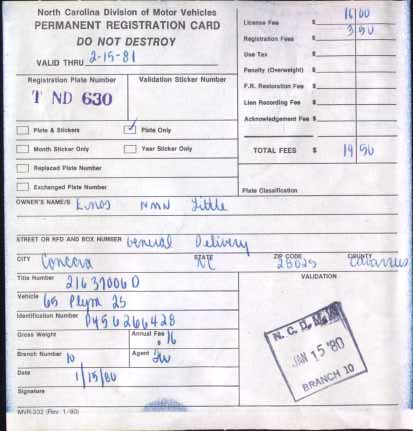 North Carolina Division of Motor Vehicles
PERMANENT REGISTRATION CARD
DO NOT DESTROY
VALID THRU 2-15-81
Registration Plate Number Validation Sticker Number
T ND 630
Plate & Stickers Plate Only
Month Sticker Only Year Sticker Only
Replaced Plate Number
Exchanged Plate Number
License Fee $ 16 00
Registration Fees $ 3 50
Use Tax $
Penalty (Overweight) $
F.R. Restoration Fee $
Lien Recording Fee $
Acknowledgement Fee $
TOTAL FEES $ 19 50
Plate Classification
OWNER'S NAME/S Enos NMN Little
STREET OR RFD AND BOX NUMBER General Delivery
CITY STATE ZIP CODE COUNTY
Concord NC 28025 Cabarrus
Title Number 21637006 D
Vehicle 65 Plym 2S
Identification Number
Gross Weight Annual Fee $ 16
Branch Number 10 Agent
Date 1/15/80
Signature
VALIDATION
N. C. D. M. V.
JAN 15 '80
BRANCH 10
MVR-332 (Rev. 1/80)